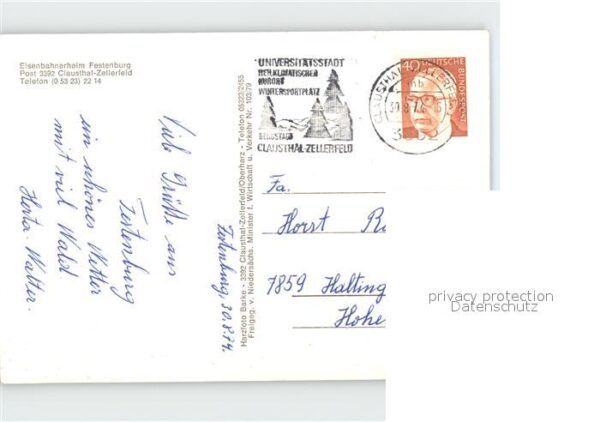 Eisenbahnerheim Festenburg
Post 3392 Clausthal-Zellerfeld
Telefon (0 53 23) 22 14
Viele Grüße aus
Festenburg
ein schönes Wetter
mit viel Wald.
Herta. Walter.
Festenburg, 30.8.74.
Harzfoto Barke - 3392 Clausthal-Zellerfeld/Oberharz - Telefon 05323/2155
Freigeg. v. Niedersächs. Minister f. Wirtschaft u. Verkehr Nr. 103/79
UNIVERSITÄTSSTADT
HEILKLIMATISCHER
KURORT
WINTERSPORTPLATZ
BERGSTADT
CLAUSTHAL-ZELLERFELD
CLAUSTHAL-ZELLERFELD
mb
3392
40
DEUTSCHE
BUNDESPOST
Fa.
Horst
7859 Halting
Hohe
privacy protection
Datenschutz